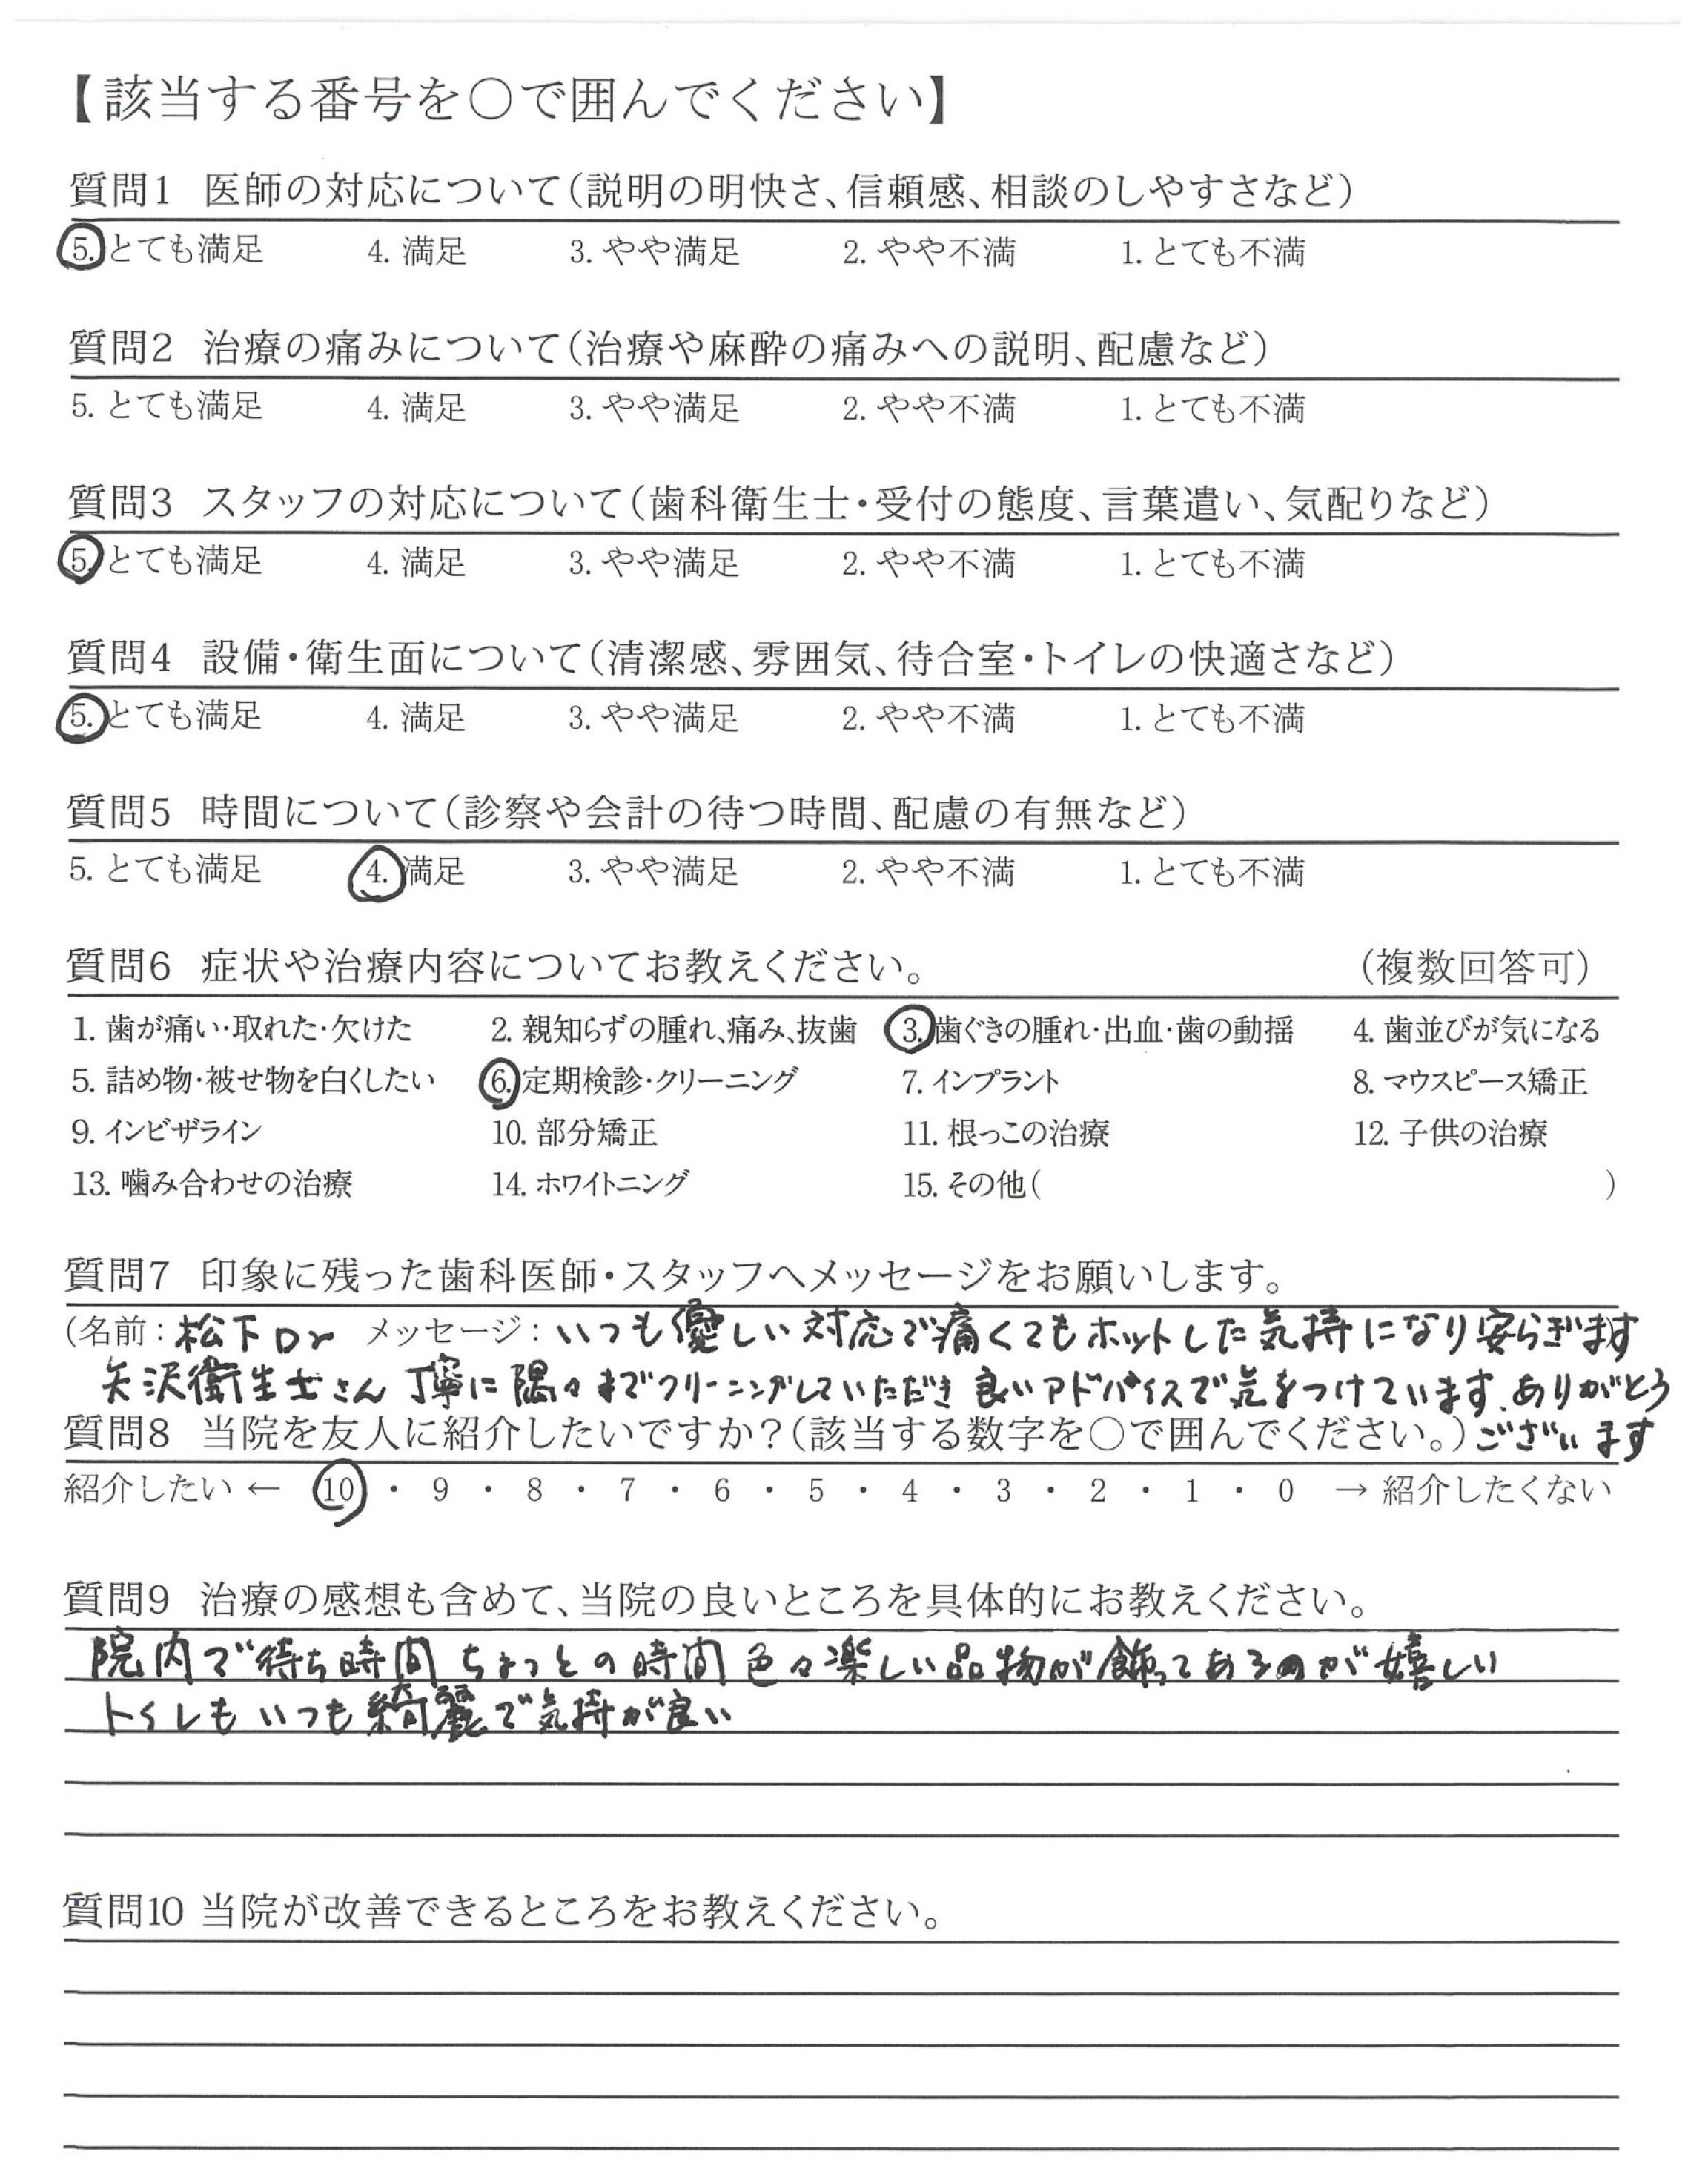 【該当する番号を〇で囲んでください】
質問1 医師の対応について(説明の明快さ、信頼感、相談のしやすさなど)
5. とても満足 4. 満足 3. やや満足 2. やや不満 1. とても不満
質問2 治療の痛みについて(治療や麻酔の痛みへの説明、配慮など)
5. とても満足 4. 満足 3. やや満足 2. やや不満 1. とても不満
質問3 スタッフの対応について(歯科衛生士・受付の態度、言葉遣い、気配りなど)
5. とても満足 4. 満足 3. やや満足 2. やや不満 1. とても不満
質問4 設備・衛生面について(清潔感、雰囲気、待合室・トイレの快適さなど)
5. とても満足 4. 満足 3. やや満足 2. やや不満 1. とても不満
質問5 時間について(診察や会計の待つ時間、配慮の有無など)
5. とても満足 4. 満足 3. やや満足 2. やや不満 1. とても不満
質問6 症状や治療内容についてお教えください。 (複数回答可)
1. 歯が痛い・取れた・欠けた 2. 親知らずの腫れ、痛み、抜歯 3. 歯ぐきの腫れ・出血・歯の動揺 4. 歯並びが気になる
5. 詰め物・被せ物を白くしたい 6. 定期検診・クリーニング 7. インプラント 8. マウスピース矯正
9. インビザライン 10. 部分矯正 11. 根っこの治療 12. 子供の治療
13. 噛み合わせの治療 14. ホワイトニング 15. その他( )
質問7 印象に残った歯科医師・スタッフへメッセージをお願いします。
(名前：松下Dr メッセージ：いつも優しい対応で痛くてもホットした気持になり安らぎます
矢沢衛生士さん 丁寧に隅々までクリーニングしていただき 良いアドバイスで気をつけています。ありがとう
質問8 当院を友人に紹介したいですか？(該当する数字を〇で囲んでください。) ございます
紹介したい ← 10 ・ 9 ・ 8 ・ 7 ・ 6 ・ 5 ・ 4 ・ 3 ・ 2 ・ 1 ・ 0 → 紹介したくない
質問9 治療の感想も含めて、当院の良いところを具体的にお教えください。
院内で待ち時間 ちょっとの時間 色々楽しい品物が飾ってあるのが嬉しい
トイレもいつも綺麗で気持が良い
質問10 当院が改善できるところをお教えください。